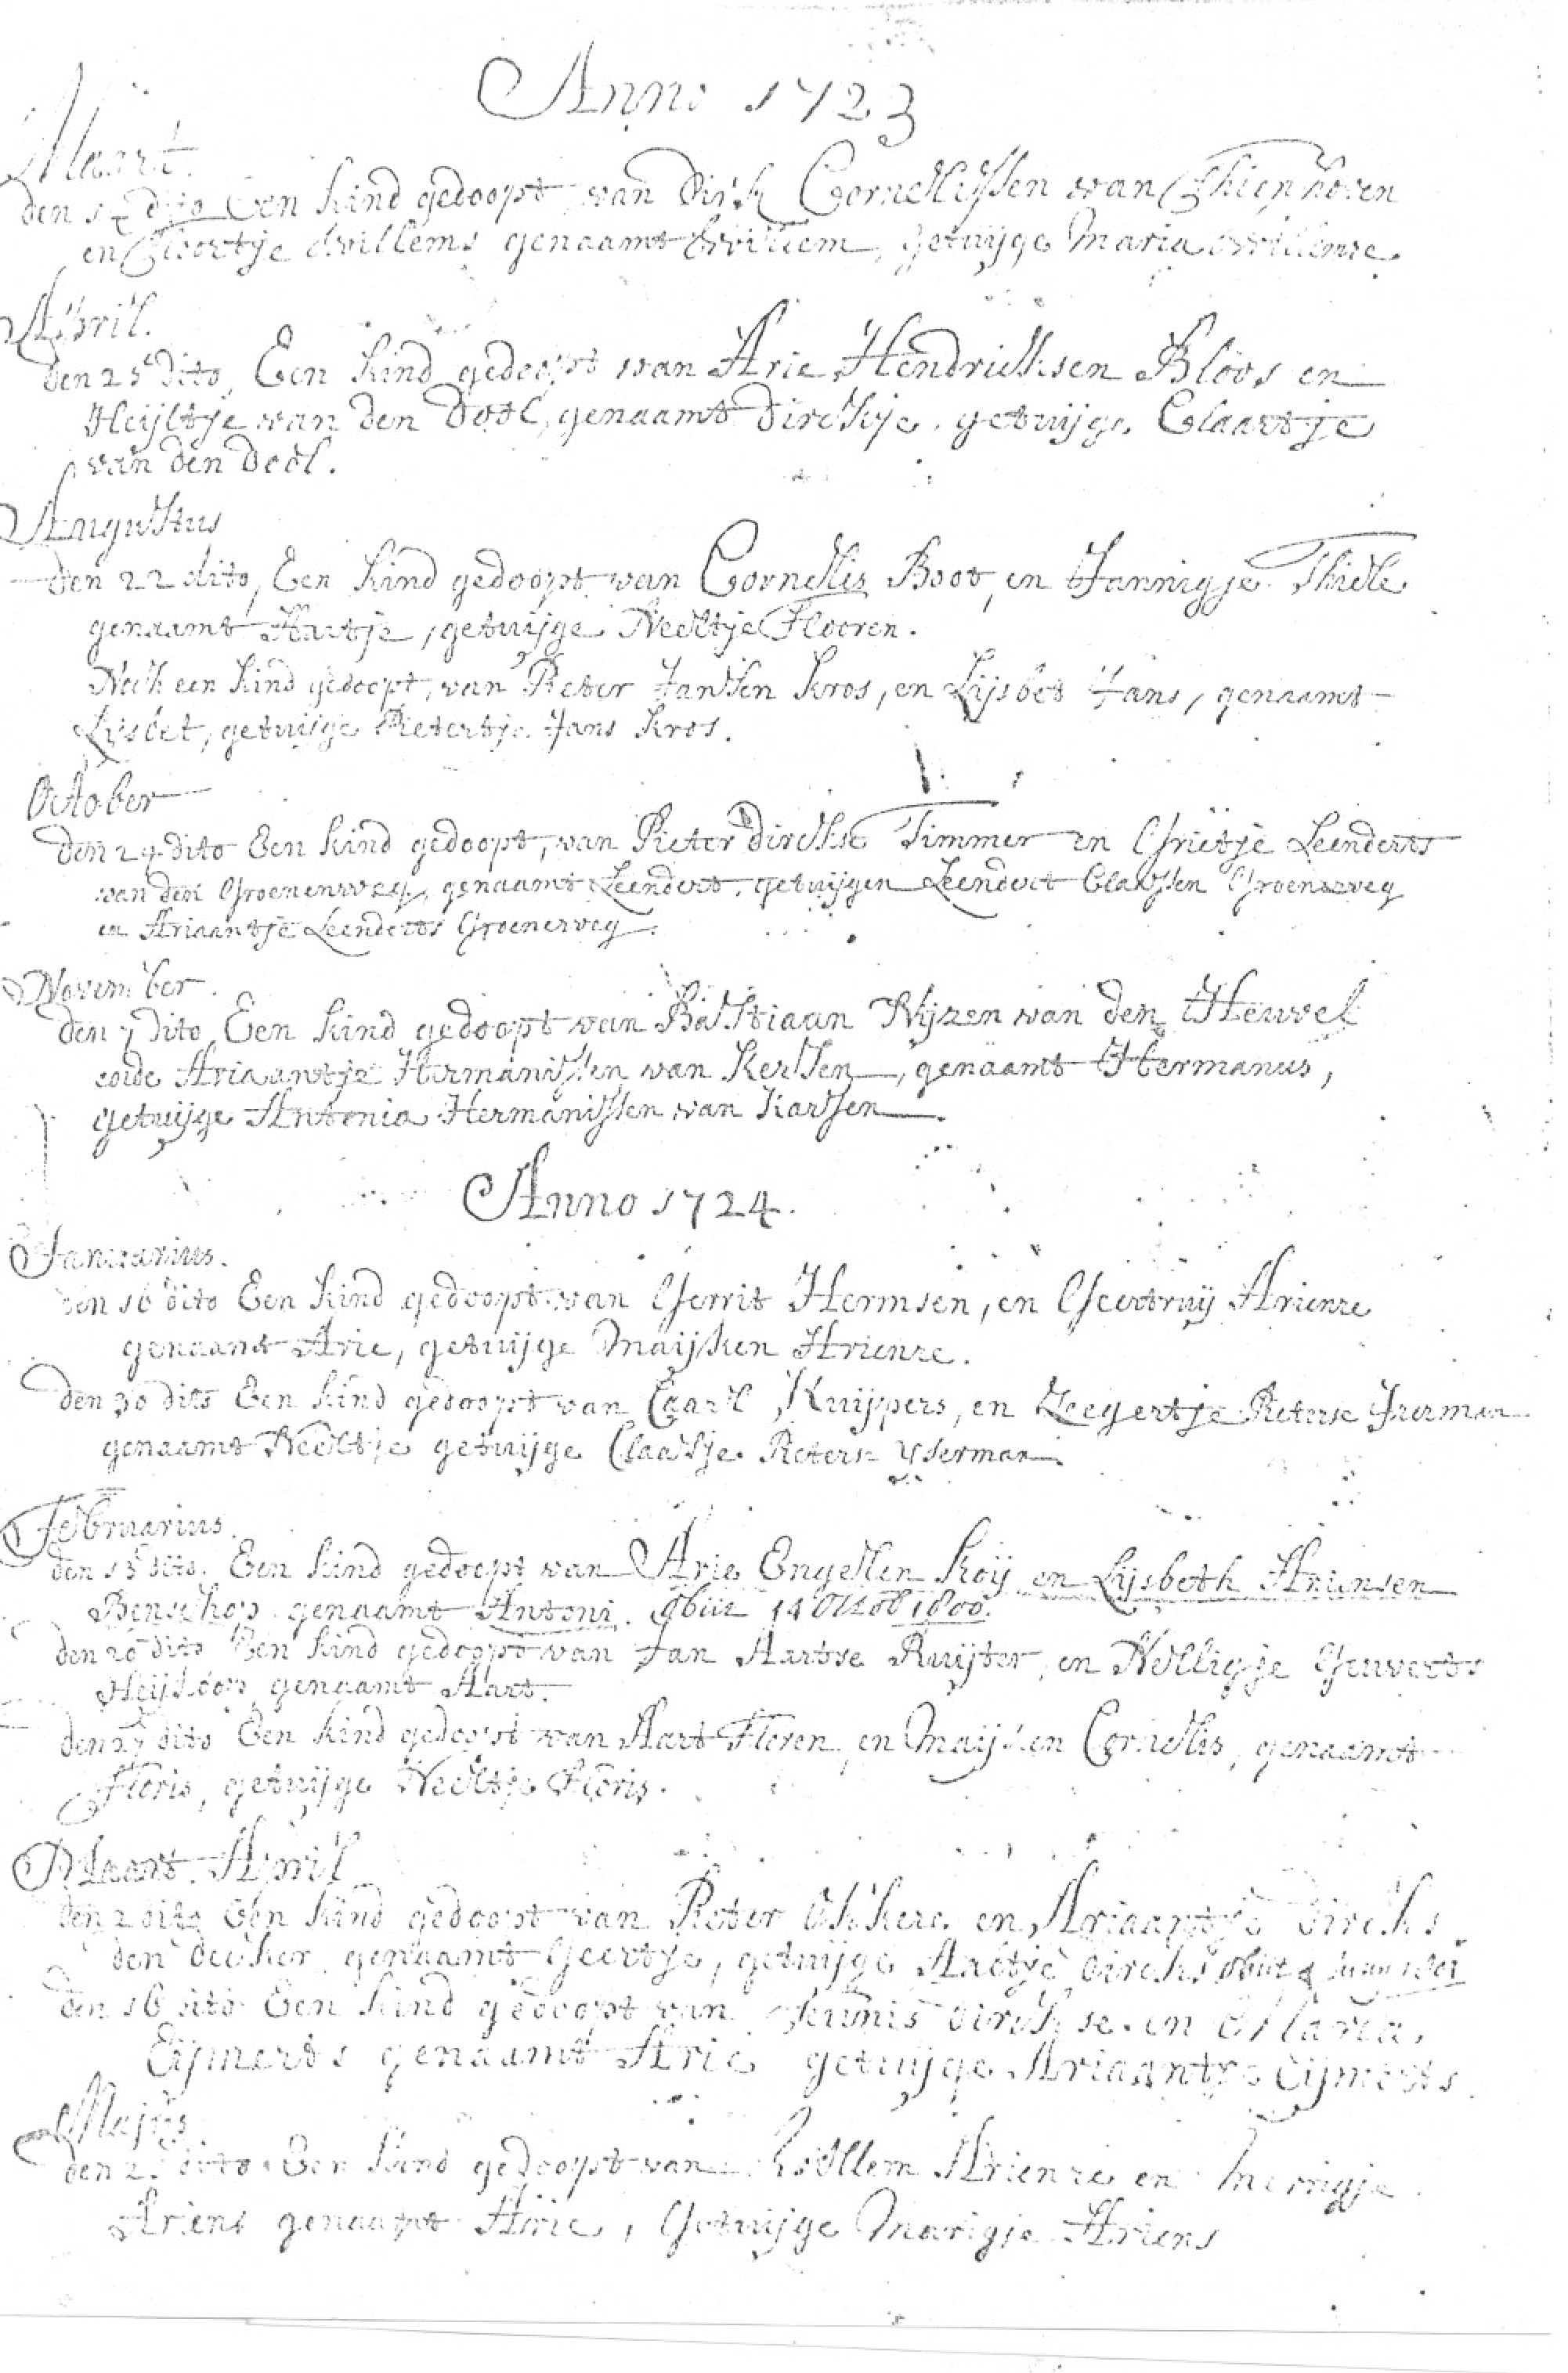 Anno 1723
Maart.
den 14 dito Een kind gedoopt, van Dirk Cornelissen van Thienhoven
en Groortje Willems genaamt Willem, getuijge Maria Willemse.
April.
den 25 dito, Een kind gedoopt van Arie Hendricksen Bloos en
Heijltje van den Dool, genaamt Dirckje, getuijge Claartje
van den Dool.
Augustus
den 22 dito, Een kind gedoopt van Cornelis Boot, en Jannigje Thiele
genaamt Aartje, getuijge Neeltje Flooren.
Noch een kind gedoopt, van Pieter Janssen Kros, en Lijsbet Jans, genaamt
Lijsbet, getuijge Pietertje Jans Kros.
October
den 24 dito Een kind gedoopt, van Pieter Dirckse Timmer en Grietje Leenderts
van den Groenenweg, genaamt Leendert, getuijgen Leendert Claassen Groeneweg
en Ariaantje Leenderts Groeneweg.
November.
den 7 dito Een kind gedoopt van Bastiaan Wijzen van den Heuvel
ende Ariaantje Hermanissen van Kerssen, genaamt Hermanus,
getuijge Antonia Hermanissen van Karssen.
Anno 1724.
Januarius.
den 16 dito Een kind gedoopt van Gerrit Hermsen, en Geertruij Arienze
genaamt Arie, getuijge Maijken Arienze.
den 30 dito Een kind gedoopt van Caarl Kuijppers, en Zeegertje Pieterse Iserman
genaamt Neeltje getuijge Claasje Pieterse Yserman.
Februarius.
den 13 dito. Een kind gedoopt van Arie Engellen Koij en Lijsbeth Ariensen
Benschop genaamt Antoni. Obiit 14 Octob 1800.
den 20 dito Een kind gedoopt van Jan Aartse Ruijter, en Nelligje Geuverts
Heijkoop genaamt Aart.
den 27 dito Een kind gedoopt van Aart Floren, en Maijken Cornelis, genaamt
Floris, getuijge Neeltje Floris.
Maart. April
den 2 dito Een kind gedoopt van Pieter en Ariaantje Dircks
den Decker genaamt Geertje, getuijge Aaltje Dircks obiit 4 1801
den 16 dito Een kind gedoopt van Teunis Dirckse en Maria
Eijmerts genaamt Arie getuijge Ariaantje Eijmerts.
Majus
den dito Een kind gedoopt van Willem Arienze en Merrigje
Ariens genaamt Arie, Getuijge Marigje Ariens